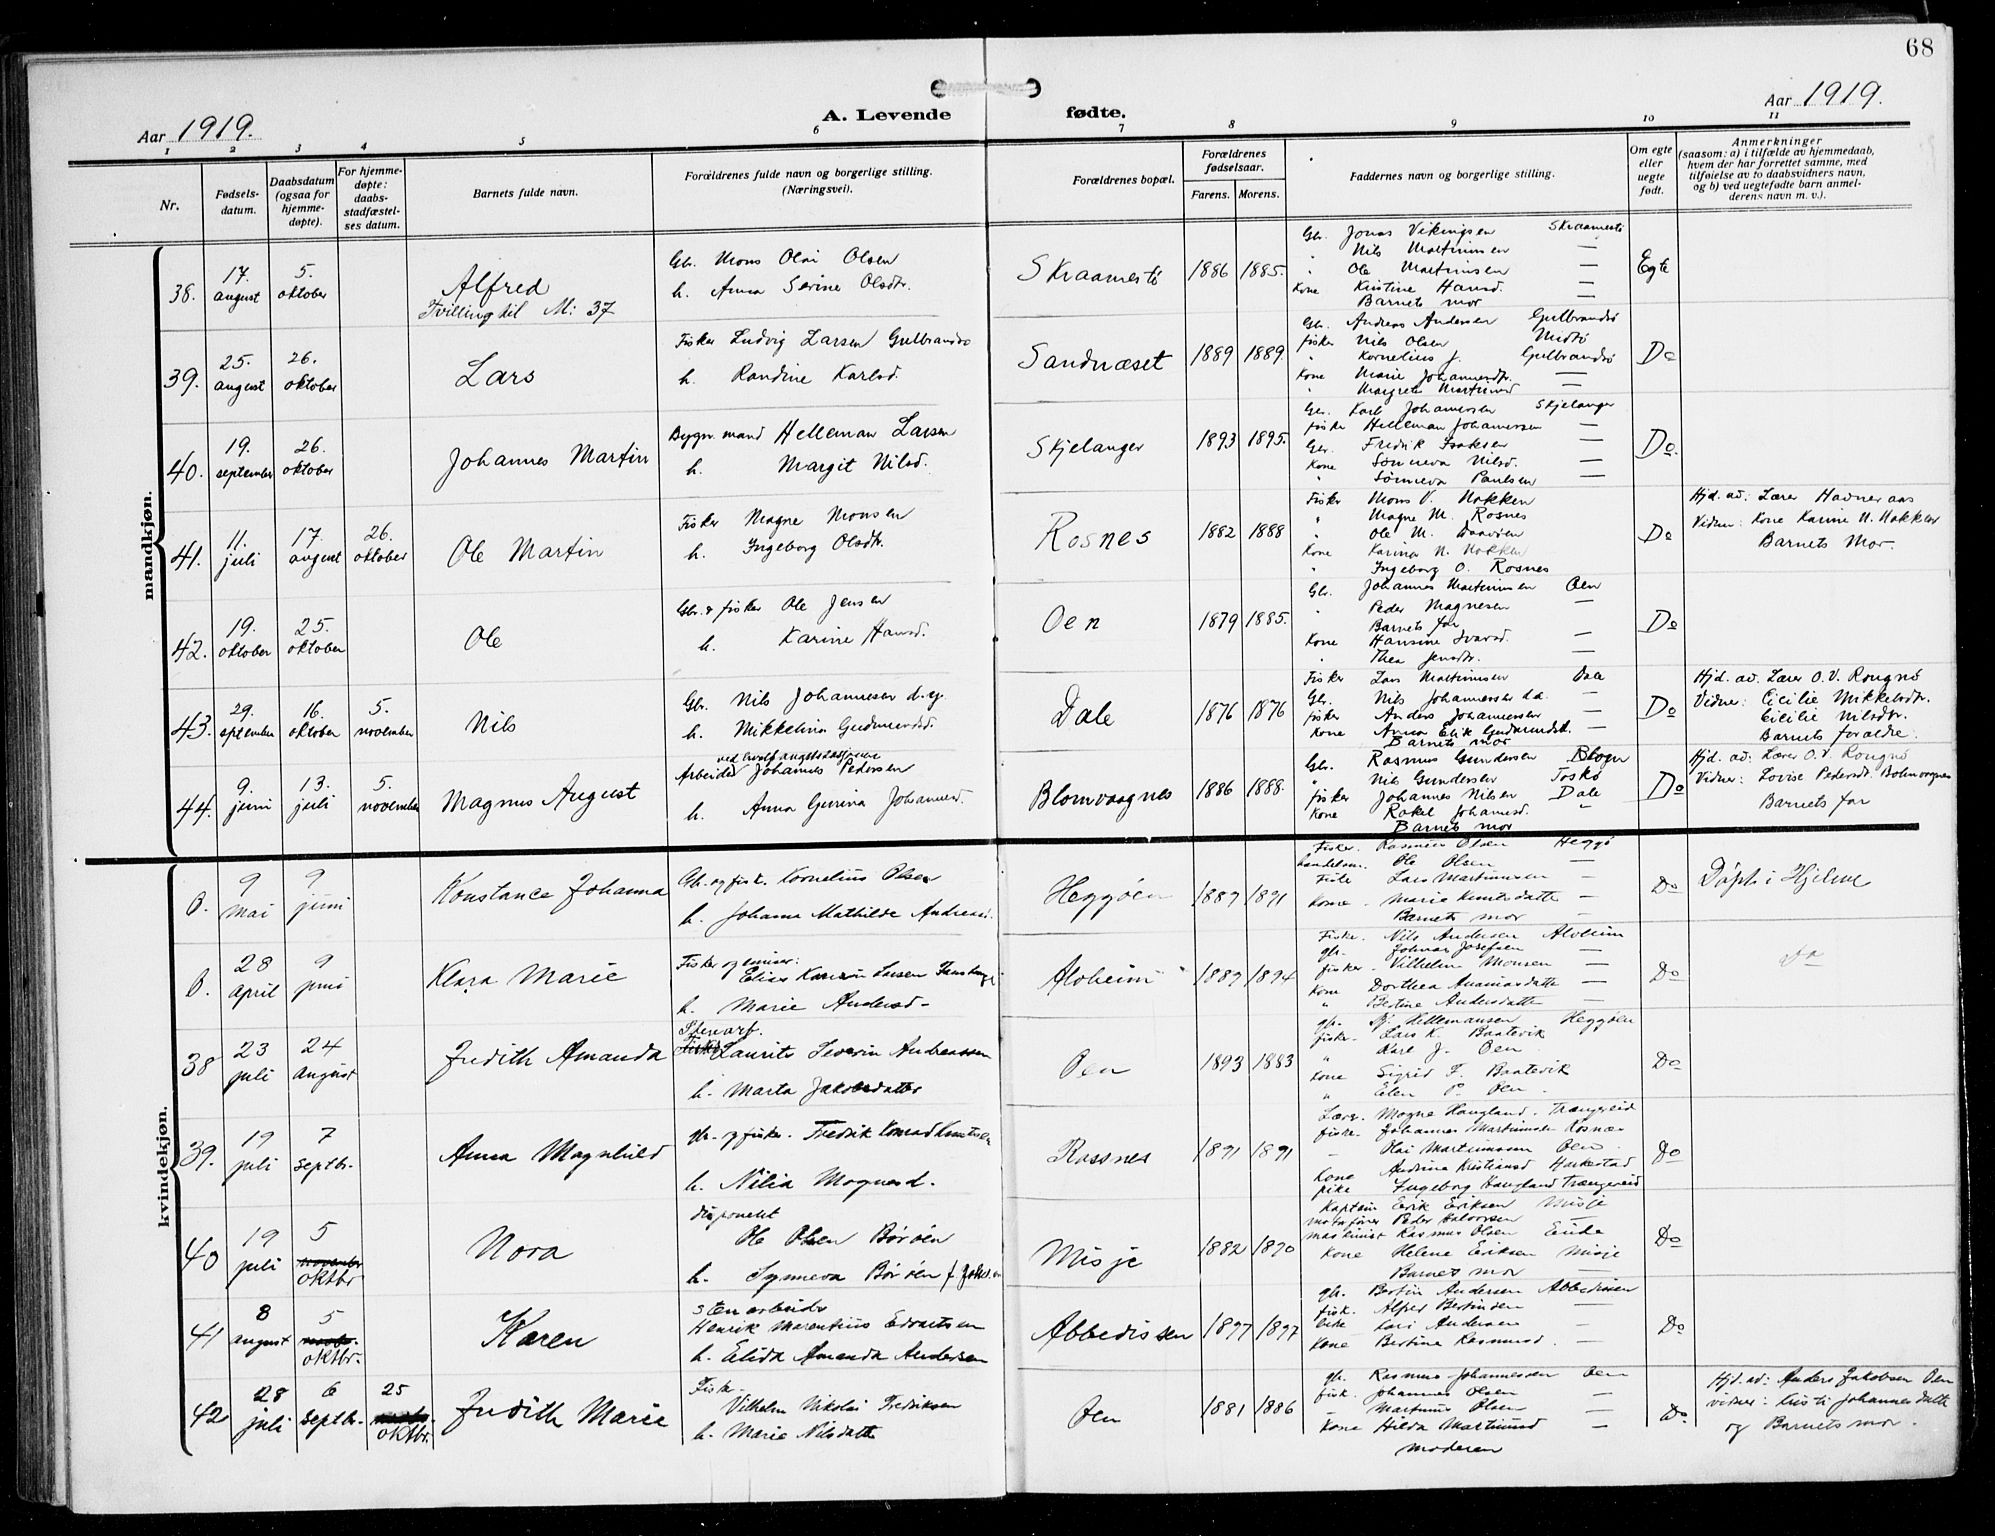 68
Aar 1919.
A. Levende fødte.
Aar 1919.
1 2 3 4 5 6 7 8 9 10 11
Nr.
Fødsels-
datum.
Daabsdatum
(ogsaa for
hjemme-
døpte).
For hjemme-
døpte:
daabs-
stadfæstel-
ses datum.
Barnets fulde navn.
Forældrenes fulde navn og borgerlige stilling.
(Næringsvei).
Forældrenes bopæl.
Forældrenes
fødselsaar.
Farens. Morens.
Faddernes navn og borgerlige stilling.
Om egte
eller
uegte
født.
Anmerkninger
(saasom: a) i tilfælde av hjemmedaab,
hvem der har forrettet samme, med
tilføielse av to daabsvidners navn,
og b) ved uegtefødte barn anmel-
derens navn m. v.).
mandkjøn.
38.
17.
august
5.
oktober
Alfred
Tvilling til M: 37
Gbr. Mons Olai Olsen
h. Anna Serine Olsdtr.
Skraamestø
1886 1885.
Gbr. Jonas Vikingsen Skraamestø
" Nils Martinussen —
" Ole Martinussen —
Kone Kristine Hansd. —
Barnets mor
Egte
39.
25.
august
26.
oktober
Lars
Fisker Ludvig Larsen Gulbrandsø
h. Randine Karlsd.
Sandnæset
1889 1889.
Gbr. Andreas Andersen Gulbrandsø
fisker Nils Olsen Nidtø
" Kornelius J. Gulbrandsø
Kone Marie Johannesdtr. —
Margrete Martinusd —
Do
40.
19.
september
26.
oktober
Johannes Martin
Bygn.mand Helleman Larsen
h. Margit Nilsd.
Skjelanger
1893 1895.
Gbr. Karl Johannessen Skjelanger
fisker Helleman Johannessen —
Gbr. Fredrik Isaksen —
Kone Sønneva Nilsd. —
" Sønneva Paulsen —
Do.
41.
11.
juli
17.
august
26.
oktober
Ole Martin
Fisker Magne Monsen
h. Ingeborg Olsdtr.
Rosnes
1882 1888
Fisker Mons V. Nokken
" Magne M. Rosnes
" Ole M.
Kone Karina N. Nokken
" Ingeborg O. Rosnes
Do
Hjd. av: Lærer Havneraas
Vidner: Kone Karine N. Nokken
Barnets Mor.
42.
19.
oktober
25.
oktober
Ole
Gbr. & fisker Ole Jensen
h. Karine Hansd.
Oen
1879 1885.
Gbr. Johannes Martinussen Oen
" Peder Magnesen —
Barnets far
Kone Hansine Ivarsd. —
" Thea Jensdtr. —
Do
43.
29.
september
16.
oktober
5.
november
Nils
Gbr. Nils Johannesen d.y.
h. Mikkelina Gudmundsd.
Dale
1876 1876
Fisker Lars Martinussen Dale
Gbr. Nils Johannessen d.æ. —
fisker Anders Johannessen —
Kone Anna Elik Gudmundsdt. —
Barnets mor
Do
Hjd. av. Lærer O.V. Rongnø
Vidner: Cicilie Mikkelsdtr.
Cicilie Nilsdtr.
Barnets forældre.
44.
9.
juni
13.
juli
5.
november
Magnus August
ved hvalfangststasjonene
Arbeider Johannes Pedersen
h. Anna Gurina Johannesd.
Blomvaagnes
1886 1888.
Gbr. Rasmus Gundersen Blogn
" Nils Gundersen Toskø
fisker Johannes Nilsen Dale
Kone Rakel Johannesd. "
Barnets mor
Do
Hjd. av: Lærer O.V. Rongnø
Vidner: Lovise Pedersdt. Bolmvagnes
Barnets far
kvindekjøn.
0.
9
mai
9
juni
Konstance Johanna
Gbr. og fisk. Kornelius Olsen
h. Johanne Mathilde Andreasd.
Heggøen
1889 1891
Fisker. Rasmus Olsen Heggø
handelsm. Ole Olsen —
Fiske Lars Martinussen —
Kone - Marie Knutsdatter —
Barnets mor —
Do
Døpt i Hjelme
0.
28
april
9
juni
Klara Marie
Fisker og emiser:
Elias Larsen
h. Marie Andersd-
Aloheim
1889 1894
Fiske. Nils Andersen Alvheim
gbr. Johan Josefsen —
fisker. Vilhelm Monsen —
Kone Dorthea Ananiasdatter —
" Bertine Andersdatter —
Do
Do
38
23
juli
24
august
Judith Amanda
Stenarb.
Fisker Laurits Severin Andreassen
h. Marta Jakobsdatter
Oen
1893 1883
gbr. Hellemansen Heggøen
fisker. Lars K. Baatevik
" Karl J. Oen
Kone Sigrid F. Baatevik
" Elen P. Oen
Do
39.
19
juli
7
septbr.
Anna Magnhild
gbr. og fisker. Fredrik Konrad Knutsen
h. Nilia Mognesd.
Rossnes
1891 1891
Lærer. Mogne Haugland. Trængereid
fisker. Johannes Martinussen Rosnæs
— Olai Martinussen Oen
Kone Andrina Kristiansd Harkestad
pike Ingeborg Haugland Trængereid
Do
40
19
juli
5
november
oktbr
Nora
disponent
Ole Olsen Børøen
h. Synneva Børøen f. Johnsen
Misje
1882 1890
Kaptein Eirik Eriksen Misje
motorfører Peder Halvorsen
maskinist Rasmus Olsen Eide
Kone Helene Eriksen Misje
Barnets mor —
Do
41
8
august
5
novbr.
oktbr.
Karen
Stenarbeider
Henrik Marentius Edvartsen
h. Elida Amanda Andersen
Abbedissen
1897 1897
gbr. Bertin Andersen Abbedissen
fisk. Alfred Bertinsen —
pike Kari Andersen —
Kone Bertine Rasmusd. —
Do
42
28
juli
6
septbr.
25
novbr.
oktbr.
Judith Marie
Fisker
Vilhelm Nikolai Fredriksen
h. Marie Nilsdatter
Oen
1881 1886
gbr. Rasmus Johannessen Oen
fisk. Johannes Olsen —
— Martinus Olsen —
Kone Hilda Martinusd —
moderen
Do.
Hjd. ad: Anders Jakobsen Oen
vidner: Kristi Johannesdatter
og Barnets mor.